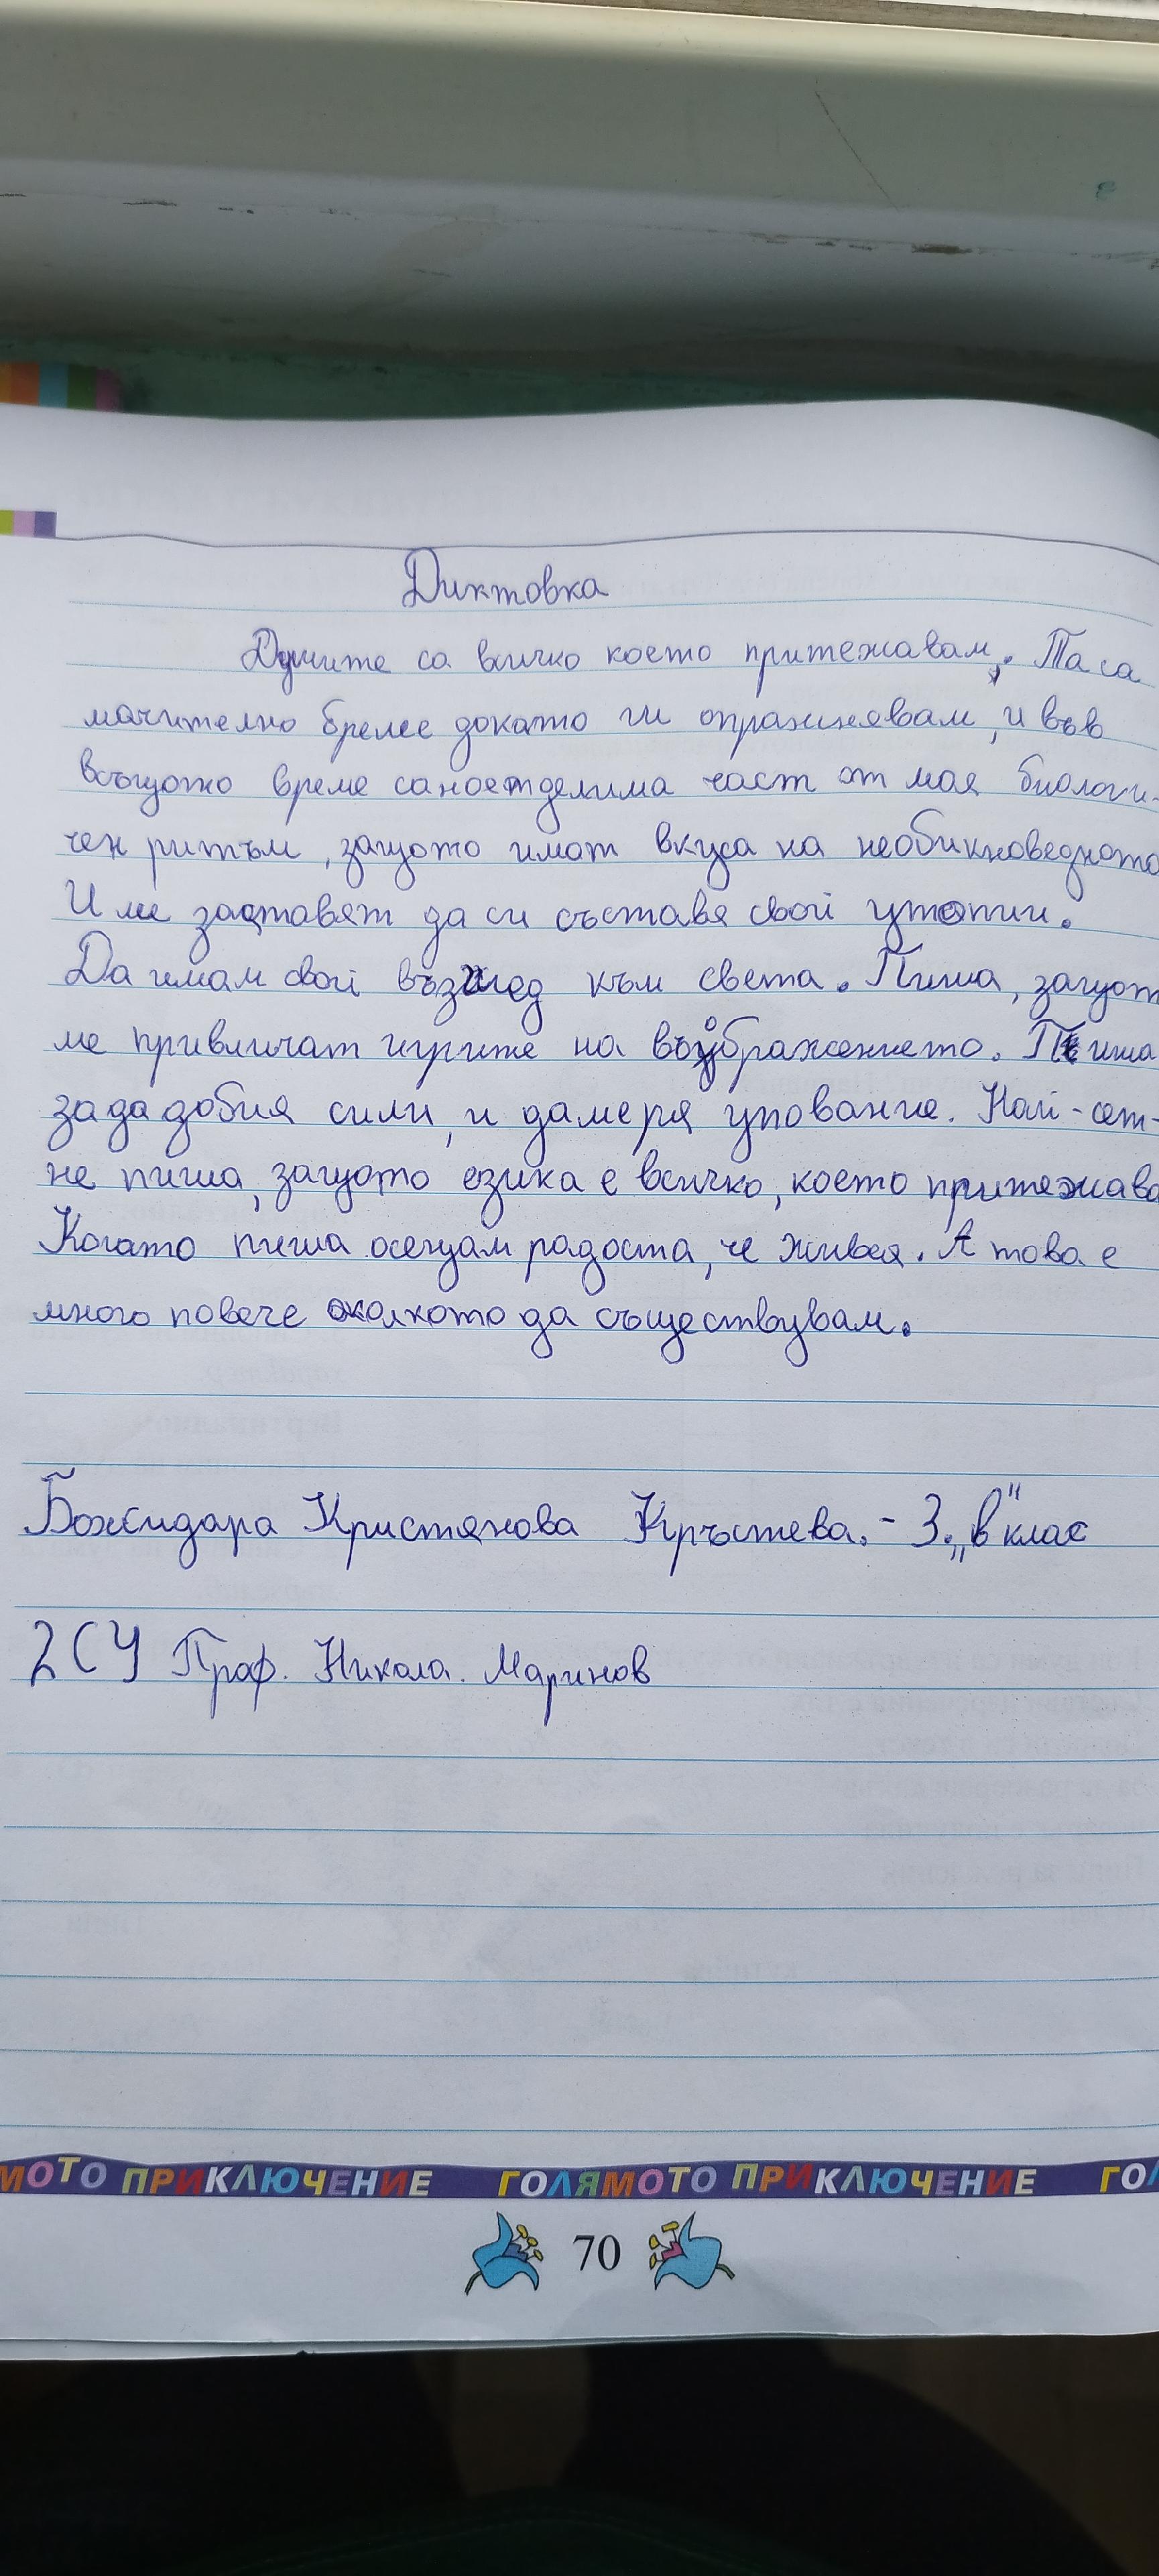 Диктовка
Думите са всичко което притежавам. Та са
мачително бреме докато ги опразнявам, и във
всъщото време са неотделима част от моя биологи-
чен ритъм, защото имат вкуса на необикноведното
И ме заставят да си съставя свой утопии.
Да имам свой възглед към света. Пиша, защот
ме привличат игрите на въображението. Пиша
за да добия сили, и да меря упование. Най-сет-
не пиша, защото езика е всичко, което притежава
Когато пиша осещам радоста, че живея. А това е
много повече околкото да съществувам.
Божидара Кристянова Кръстева. - 3. „в" клас
2СУ Проф. Никола. Маринов
МОТО ПРИКЛЮЧЕНИЕ ГОЛЯМОТО ПРИКЛЮЧЕНИЕ ГОЛ
70